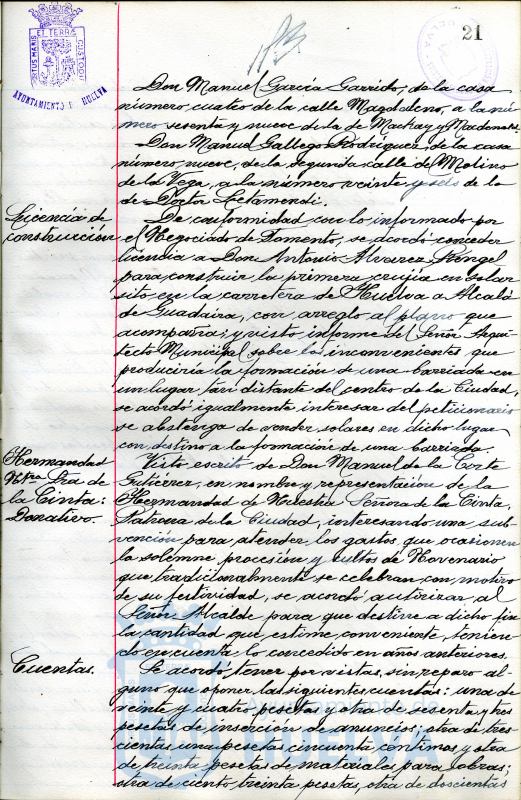 21
PORTUS MARIS ET TERRÆ CUSTODIA
AYUNTAMIENTO D HUELVA
Don Manuel García Garrido, de la casa
número cuatro de la calle Magdalena, a la nú-
mero sesenta y nueve de la de Mackay y Macdonald.
Don Manuel Gallego Rodríguez, de la casa
número nueve, de la segunda calle del Molino
de la Vega, a la número veinte y seis de la
de Doctor Letamendi.
Licencia de
construcción
De conformidad con lo informado por
el Negociado de Fomento, se acordó conceder
licencia a Don Antonio Alvarez Rangel
para construir la primera crujía en solar
sito en la carretera de Huelva a Alcalá
de Guadaira, con arreglo al plano que
acompaña; y visto informe del Señor Arqui-
tecto Municipal sobre los inconvenientes que
produciría la formación de una barriada en
un lugar tan distante del centro de la Ciudad,
se acordó igualmente interesar del peticionario
se abstenga de vender solares en dicho lugar
con destino a la formación de una barriada.
Hermandad
Ntra Sra de
la Cinta:
Donativo.
Visto escrito de Don Manuel de la Corte
Gutiérrez, en nombre y representación de la
Hermandad de Nuestra Señora de la Cinta,
Patrona de la Ciudad, interesando una sub-
vención para atender los gastos que ocasionen
la solemne procesión y cultos de Novenario
que tradicionalmente se celebran con motivo
de su festividad, se acordó autorizar al
Señor Alcalde para que destine a dicho fin
la cantidad que estime conveniente, tenien-
do en cuenta lo concedido en años anteriores.
Cuentas.
Se acordó tener por vistas, sin reparo al-
guno que oponer, las siguientes cuentas: una de
veinte y cuatro pesetas y otra de sesenta y tres
pesetas de inserción de anuncios; otra de tres-
cientas una pesetas cincuenta céntimos y otra
de treinta pesetas de materiales para obras;
otra de ciento treinta pesetas, otra de doscientas
Ayuntamiento de
HUELVA